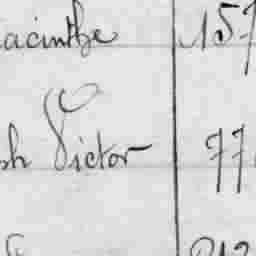 acinthe 157
ph Victor 77